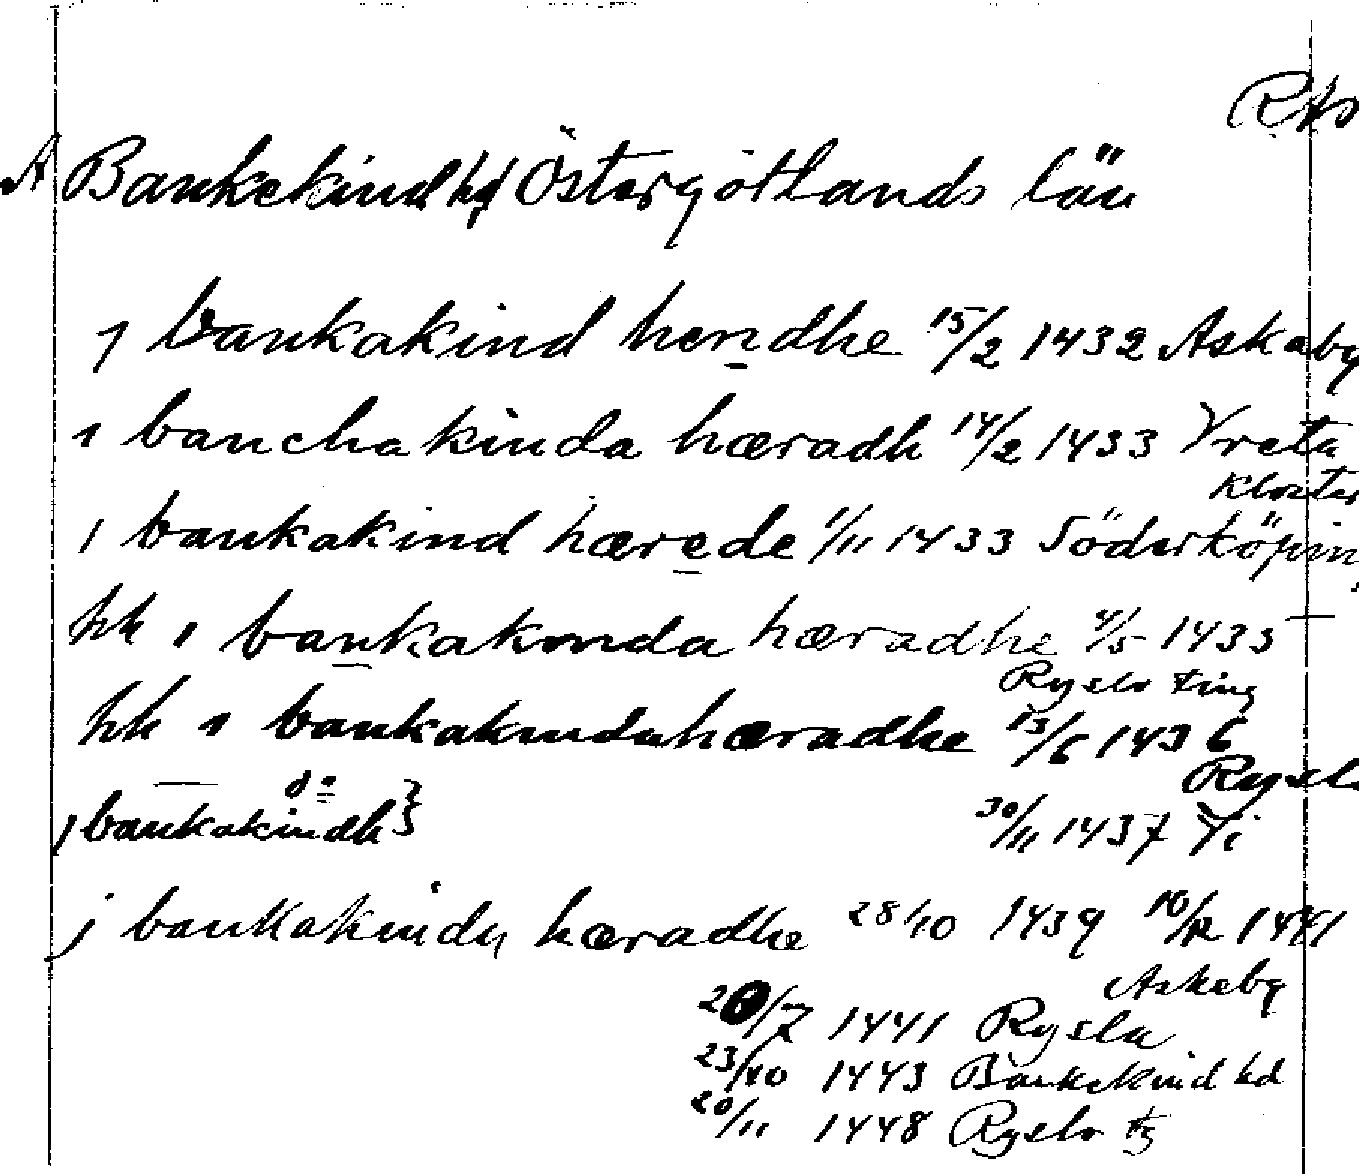 RAp
A Bankekind hd Östergötlands län
j bankakind heredhe 15/2 1432 Askaby
i banchakinda hæradh 14/2 1433 Vreta
Kloster
i bankakind hærede 1/11 1433 Söderköping
hk i bankakinda hæradhe 4/5 1435
Ryslo ting
hk i bankakindahæradhe 13/6 1436
Ryslo
j bankakindh} 30/11 1437 Vi
j bankakinda hæradhe 28/10 1439 10/12 1441
Askeby
20/7 1441 Rysla
23/10 1443 Bankekind hd
20/11 1448 Ryslo tg